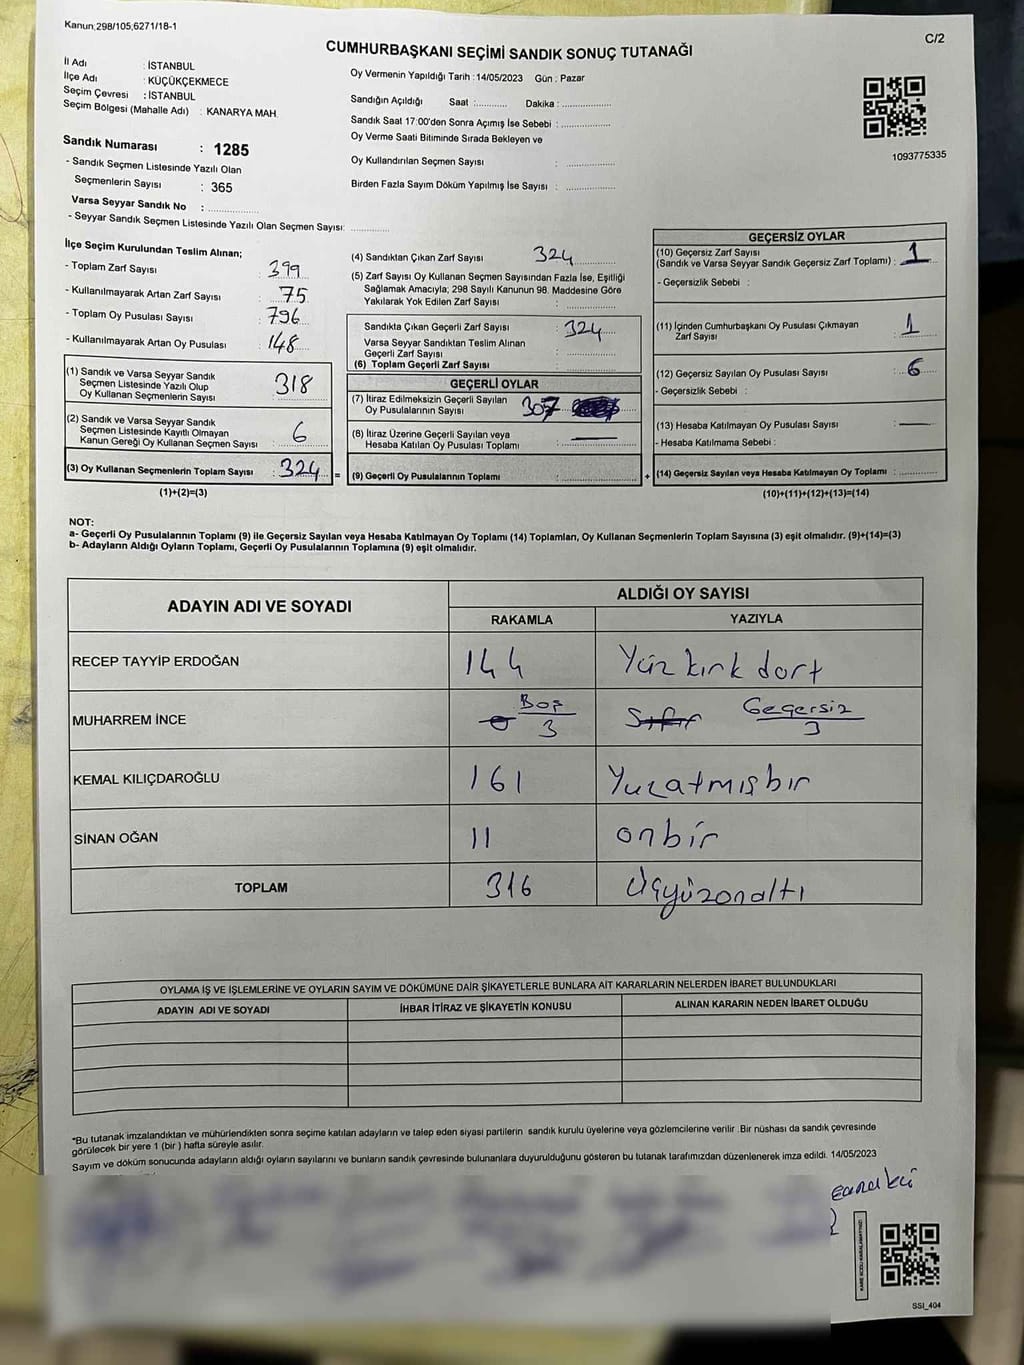 Kanun;298/105,6271/18-1
C/2
CUMHURBAŞKANI SEÇİMİ SANDIK SONUÇ TUTANAĞI
İl Adı : İSTANBUL
İlçe Adı : KÜÇÜKÇEKMECE
Seçim Çevresi : İSTANBUL
Seçim Bölgesi (Mahalle Adı) : KANARYA MAH.
Sandık Numarası : 1285
- Sandık Seçmen Listesinde Yazılı Olan
Seçmenlerin Sayısı : 365
Varsa Seyyar Sandık No :
- Seyyar Sandık Seçmen Listesinde Yazılı Olan Seçmen Sayısı:
Oy Vermenin Yapıldığı Tarih : 14/05/2023 Gün : Pazar
Sandığın Açıldığı Saat : Dakika :
Sandık Saat 17:00'den Sonra Açımış İse Sebebi :
Oy Verme Saati Bitiminde Sırada Bekleyen ve
Oy Kullandırılan Seçmen Sayısı :
Birden Fazla Sayım Döküm Yapılmış İse Sayısı :
1093775335
İlçe Seçim Kurulundan Teslim Alınan;
- Toplam Zarf Sayısı : 399
- Kullanılmayarak Artan Zarf Sayısı : 75
- Toplam Oy Pusulası Sayısı : 796
- Kullanılmayarak Artan Oy Pusulası : 148
(1) Sandık ve Varsa Seyyar Sandık
Seçmen Listesinde Yazılı Olup
Oy Kullanan Seçmenlerin Sayısı : 318
(2) Sandık ve Varsa Seyyar Sandık
Seçmen Listesinde Kayıtlı Olmayan
Kanun Gereği Oy Kullanan Seçmen Sayısı : 6
(3) Oy Kullanan Seçmenlerin Toplam Sayısı : 324 =
(1)+(2)=(3)
(4) Sandıktan Çıkan Zarf Sayısı : 324
(5) Zarf Sayısı Oy Kullanan Seçmen Sayısından Fazla İse, Eşitliği
Sağlamak Amacıyla; 298 Sayılı Kanunun 98. Maddesine Göre
Yakılarak Yok Edilen Zarf Sayısı :
Sandıkta Çıkan Geçerli Zarf Sayısı : 324
Varsa Seyyar Sandıktan Teslim Alınan
Geçerli Zarf Sayısı :
(6) Toplam Geçerli Zarf Sayısı :
GEÇERLİ OYLAR
(7) İtiraz Edilmeksizin Geçerli Sayılan
Oy Pusulalarının Sayısı : 307
(8) İtiraz Üzerine Geçerli Sayılan veya
Hesaba Katılan Oy Pusulası Toplamı :
(9) Geçerli Oy Pusulalarının Toplamı : +
GEÇERSİZ OYLAR
(10) Geçersiz Zarf Sayısı
(Sandık ve Varsa Seyyar Sandık Geçersiz Zarf Toplamı) : 1
- Geçersizlik Sebebi :
(11) İçinden Cumhurbaşkanı Oy Pusulası Çıkmayan
Zarf Sayısı : 1
(12) Geçersiz Sayılan Oy Pusulası Sayısı : 6
- Geçersizlik Sebebi :
(13) Hesaba Katılmayan Oy Pusulası Sayısı :
- Hesaba Katılmama Sebebi :
(14) Geçersiz Sayılan veya Hesaba Katılmayan Oy Toplamı :
(10)+(11)+(12)+(13)=(14)
NOT:
a- Geçerli Oy Pusulalarının Toplamı (9) ile Geçersiz Sayılan veya Hesaba Katılmayan Oy Toplamı (14) Toplamları, Oy Kullanan Seçmenlerin Toplam Sayısına (3) eşit olmalıdır. (9)+(14)=(3)
b- Adayların Aldığı Oyların Toplamı, Geçerli Oy Pusulalarının Toplamına (9) eşit olmalıdır.
ADAYIN ADI VE SOYADI
ALDIĞI OY SAYISI
RAKAMLA YAZIYLA
RECEP TAYYİP ERDOĞAN 144 Yüz kırk dort
MUHARREM İNCE 0 Boş 3 Sıfır Geçersiz 3
KEMAL KILIÇDAROĞLU 161 Yuzatmışbır
SİNAN OĞAN 11 onbir
TOPLAM 316 Üçyüzonaltı
OYLAMA İŞ VE İŞLEMLERİNE VE OYLARIN SAYIM VE DÖKÜMÜNE DAİR ŞİKAYETLERLE BUNLARA AİT KARARLARIN NELERDEN İBARET BULUNDUKLARI
ADAYIN ADI VE SOYADI İHBAR İTİRAZ VE ŞİKAYETİN KONUSU ALINAN KARARIN NEDEN İBARET OLDUĞU
*Bu tutanak imzalandıktan ve mühürlendikten sonra seçime katılan adayların ve talep eden siyasi partilerin sandık kurulu üyelerine veya gözlemcilerine verilir .Bir nüshası da sandık çevresinde
görülecek bir yere 1 (bir ) hafta süreyle asılır.
Sayım ve döküm sonucunda adayların aldığı oyların sayılarını ve bunların sandık çevresinde bulunanlara duyurulduğunu gösteren bu tutanak tarafımızdan düzenlenerek imza edildi. 14/05/2023
SSI_404